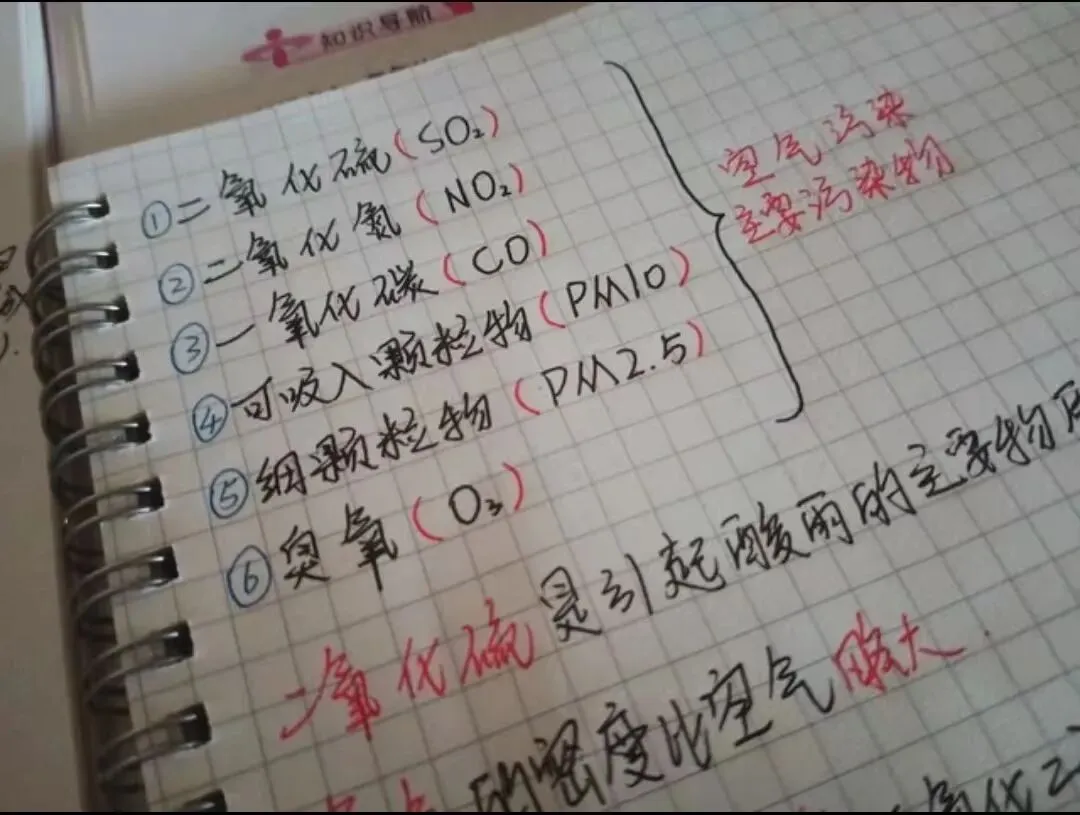 知识导航
①二氧化硫(SO₂)
②二氧化氮(NO₂)
③一氧化碳(CO)
④可吸入颗粒物(PM10)
⑤细颗粒物(PM2.5)
⑥臭氧(O₃)
空气污染
主要污染物
二氧化硫是引起酸雨的主要物
的密度比空气略大